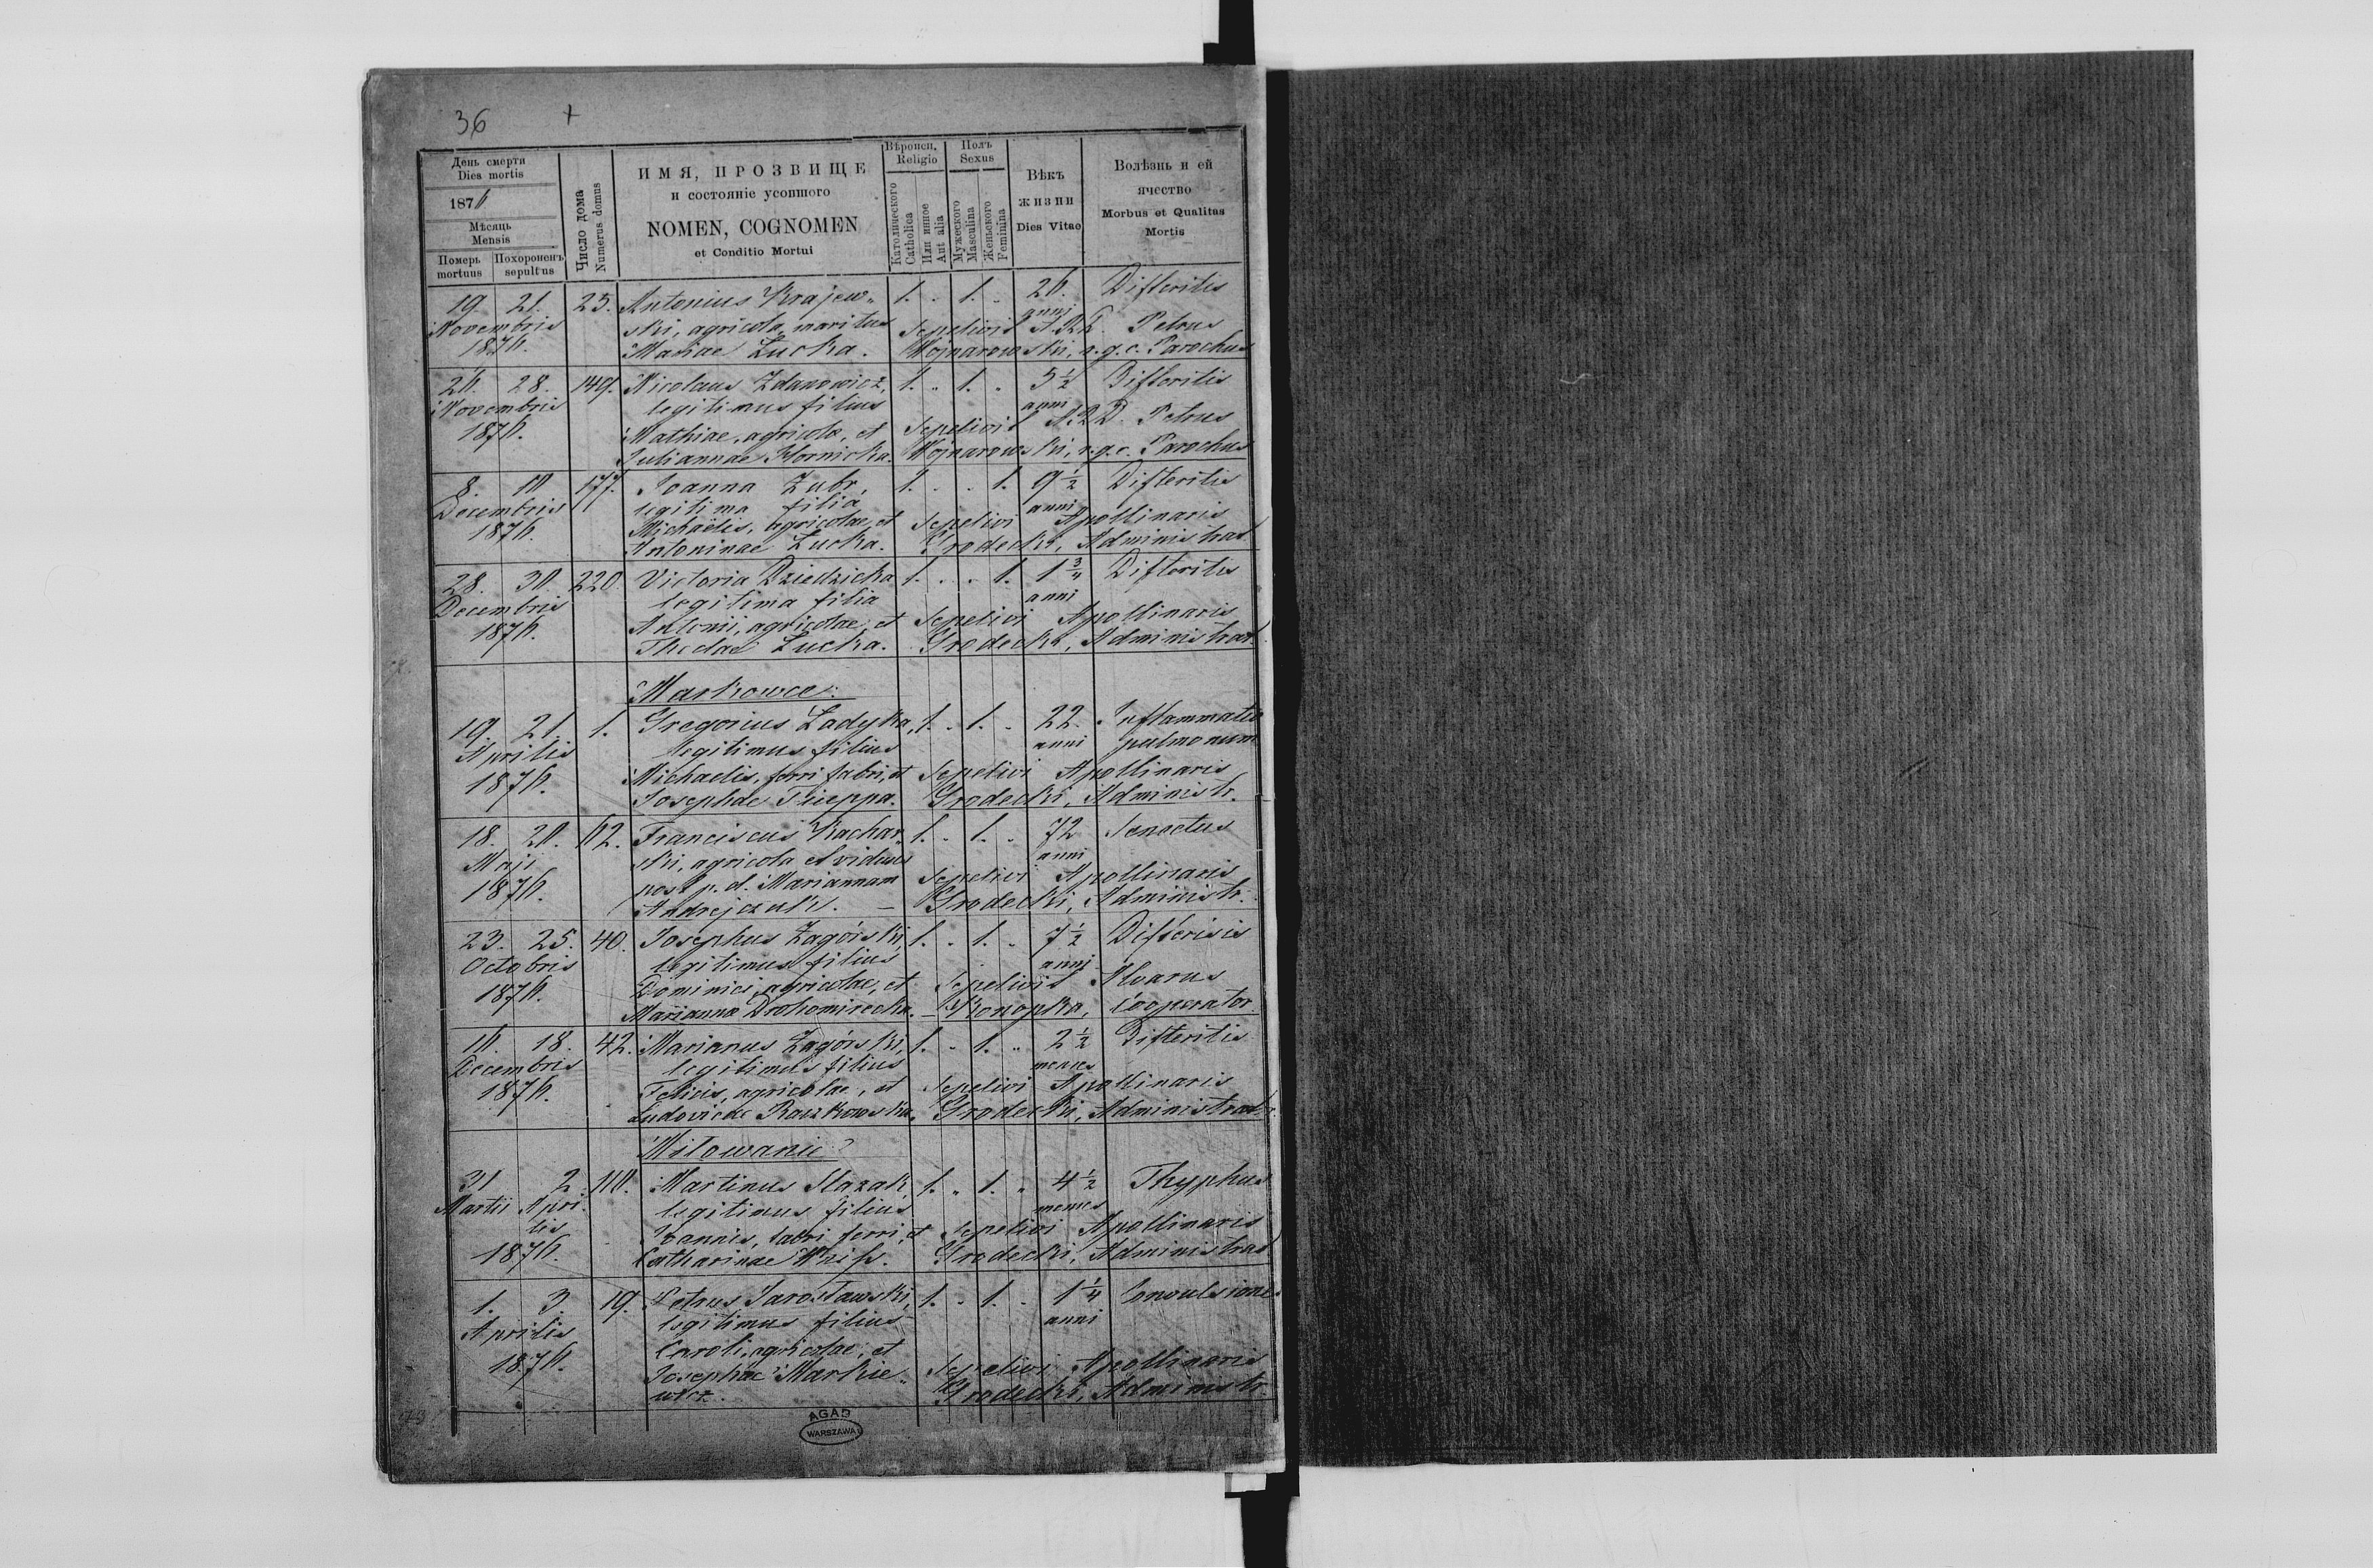 36 +
День смерти
Dies mortis
1876
Мѣсяць
Mensis
Померъ Похороненъ
mortuus sepultus
Число дома
Numerus domus
ИМЯ, ПРОЗВИЩЕ
и состояніе усопшого
NOMEN, COGNOMEN
et Conditio Mortui
Вѣроисп.
Religio
Католического
Catholica
Или инное
Aut alia
Полъ
Sexus
Мужеского
Masculina
Женьского
Feminina
Вѣкъ
жизни
Dies Vitae
Волѣзнь и ей
ячество
Morbus et Qualitas
Mortis
19. 21. 25. Antonius Krajew„ 1. . 1. „ 26. Difteritis
Novembris ski, agricola, maritus anni Sepelivit A.R.D. Petrus
1876. Mariae Łucka. Wojnarowski, r.g.c. Parochus
26. 28. 149. Nicolaus Zdanowicz, 1. „ 1. „ 5 1/2 Difteritis
Novembris legitimus filius anni
1876. Mathiae, agricolae, et Sepelivit A.R.D. Petrus
Juliannae Hornicka. Wojnarowski, r.g.c. Parochus
8. 10 177. Joanna Zubr, 1. . . 1. 9 1/2 Difteritis
Decembris legitima filia anni
1876. Michaelis, agricolae, et Sepelivi Apollinaris
Antoninae Łucka. Grodecki, Administrat
28. 30. 220. Victoria Dziedzicka 1. . . 1. 1 3/4 Difteritis
Decembris legitima filia anni
1876. Antonii, agricolae, et Sepelivi Apollinaris
Theclae Łucka. Grodecki, Administrat.
Markowce:
19. 21. 1. Gregorius Ładyka, 1. . 1. . 22. Inflammatio
Aprilis legitimus filius anni pulmonum
1876. Michaelis, ferri fabri, et Sepelivi Apollinaris
Josephae Grodecki, Administr.
18. 20. 62. Franciscus Kachar„ 1. . 1. . 72 Senectus
Maji ski, agricola et viduus anni
1876. post p. d. Mariannam Sepelivi Apollinaris
Andrejczuk. — Grodecki, Administr.
23. 25. 40. Josephus Zagórski, 1. . 1. . 7 1/2 Difterisis
Octobris legitimus filius anni
1876. Dominici, agricolae, et Sepelivit Alvarus
Marianna Drohomirecka. — Konopka, Cooperator.
16. 18. 42. Marianus Zagórski, 1. . 1. „ 2 1/2 Difteritis
Decembris legitimus filius menses
1876. Felicis, agricolae, et Sepelivi Apollinaris
Ludovicae Raszkowska. Grodecki, Administrat.
Miłowanie
31 2. 110. Martinus Slazak, 1. „ 1. „ 4 1/2 Thyphus
Martii Apri„ legitimus filius menses
lis Joannis, fabri ferri, et Sepelivi Apollinaris
1876. Catharinae Grodecki, Administrat
1. 3. 19. Petrus Jarosławski, 1. . 1. . 1 1/4 Convulsiones
Aprilis legitimus filius anni
1876. Caroli, agricolae, et
Josephae Markie„ Sepelivi Apollinaris
wicz. Grodecki, Administr.
AGAD
WARSZAWA